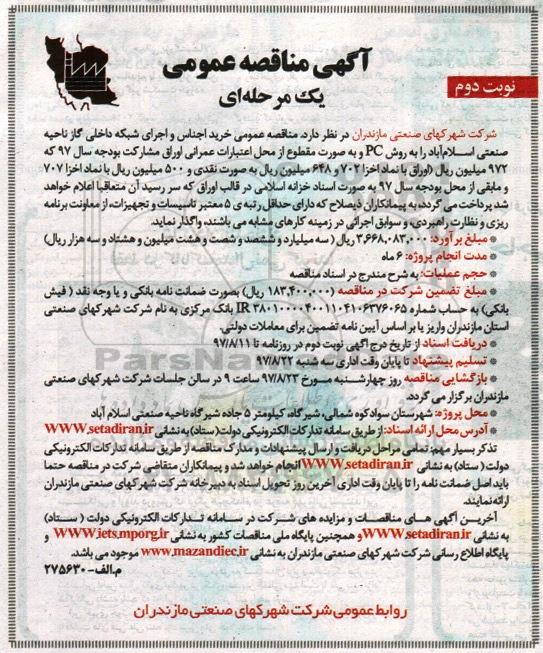 آگهی مناقصه عمومی
یک مرحله‌ای
نوبت دوم
شرکت شهرکهای صنعتی مازندران در نظر دارد، مناقصه عمومی خرید اجناس و اجرای شبکه داخلی گاز ناحیه
صنعتی اسلام‌آباد را به روش PC و به صورت مقطوع از محل اعتبارات عمرانی اوراق مشارکت بودجه سال ۹۷ که
۹۷۲ میلیون ریال (اوراق با نماد اخزا ۷۰۲ و ۶۴۸ میلیون ریال به صورت نقدی و ۵۰۰ میلیون ریال با نماد اخزا ۷۰۷
و مابقی از محل بودجه سال ۹۷ به صورت اسناد خزانه اسلامی در قالب اوراق که سر رسید آن متعاقبا اعلام خواهد
شد پرداخت می گردد، به پیمانکاران ذیصلاح که دارای حداقل رتبه ی ۵ معتبر تاسیسات و تجهیزات، از معاونت برنامه
ریزی و نظارت راهبردی، و سوابق اجرائی در زمینه کارهای مشابه می باشند، واگذار نماید.
* مبلغ برآورد: ۳,۶۶۸,۰۸۳,۰۰۰ ریال ( سه میلیارد و ششصد و شصت و هشت میلیون و هشتاد و سه هزار ریال)
* مدت انجام پروژه: ۶ ماه
* حجم عملیات: به شرح مندرج در اسناد مناقصه
* مبلغ تضمین شرکت در مناقصه (۱۸۳,۴۰۰,۰۰۰ ریال) بصورت ضمانت نامه بانکی و یا وجه نقد ( فیش
بانکی) به حساب شماره IR ۳۸۰۱۰۰۰۰۴۰۰۱۱۰۴۱۰۶۳۷۶۰۶۵ بانک مرکزی به نام شرکت شهرکهای صنعتی
استان مازندران واریز یا بر اساس آیین نامه تضمین برای معاملات دولتی.
* دریافت اسناد از تاریخ درج آگهی نوبت دوم در روزنامه تا ۹۷/۸/۱۱
* تسلیم پیشنهاد تا پایان وقت اداری سه شنبه ۹۷/۸/۲۲
* بازگشایی مناقصه روز چهارشنبه مورخ ۹۷/۸/۲۳ ساعت ۹ در سالن جلسات شرکت شهرکهای صنعتی
مازندران برگزار می گردد.
* محل پروژه: شهرستان سوادکوه شمالی، شیرگاه، کیلومتر ۵ جاده شیرگاه ناحیه صنعتی اسلام آباد
* آدرس محل ارائه اسناد: از طریق سامانه تدارکات الکترونیکی دولت( ستاد) به نشانی WWW.setadiran.ir
تذکر بسیار مهم: تمامی مراحل دریافت و ارسال پیشنهادات و مدارک مناقصه از طریق سامانه تدارکات الکترونیکی
دولت( ستاد) به نشانی WWW.setadiran.ir انجام خواهد شد و پیمانکاران متقاضی شرکت در مناقصه حتما
باید اصل ضمانت نامه را تا پایان وقت اداری آخرین روز تحویل اسناد به دبیرخانه شرکت شهرکهای صنعتی مازندران
ارائه نمایند.
آخرین آگهی های مناقصات و مزایده های شرکت در سامانه تدارکات الکترونیکی دولت ( ستاد)
به نشانی WWW.setadiran.ir و همچنین پایگاه ملی مناقصات کشور به نشانی WWW.iets.mporg.ir و
پایگاه اطلاع رسانی شرکت شهرکهای صنعتی مازندران به نشانی www.mazandiec.ir موجود می باشد.
م.الف- ۲۷۵۶۳۰
روابط عمومی شرکت شهرکهای صنعتی مازندران